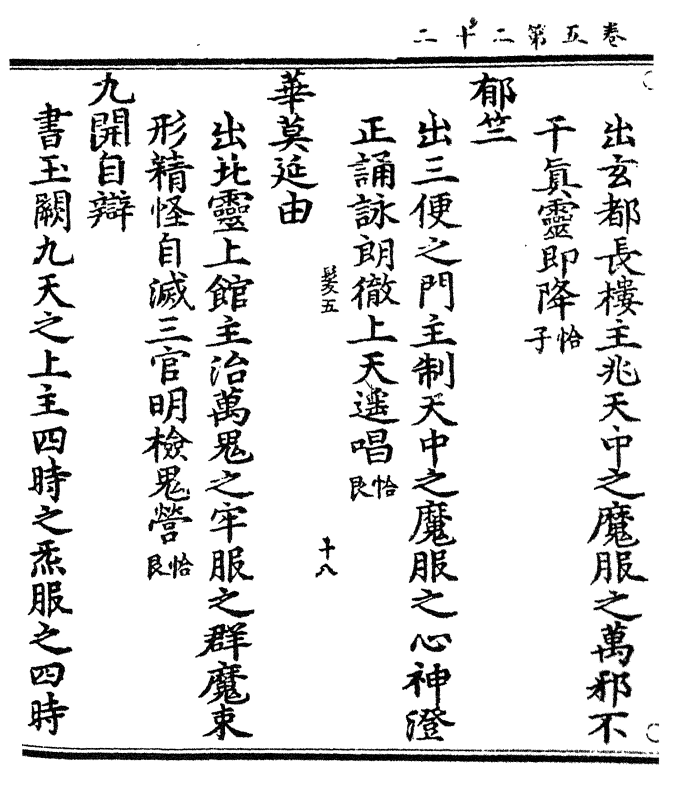 卷五第二十二
出玄都長樓主兆天中之魔服之萬邪不
干眞靈即降恰子
郁竺
出三便之門主制天中之魔服之心神澄
正誦詠朗徹上天遥唱恰艮
髮五 十八
華莫延由
出北靈上館主治萬鬼之牢服之群魔束
形精怪自滅三官明檢鬼營恰艮
九開自辯
書玉闕九天之上主四時之炁服之四時